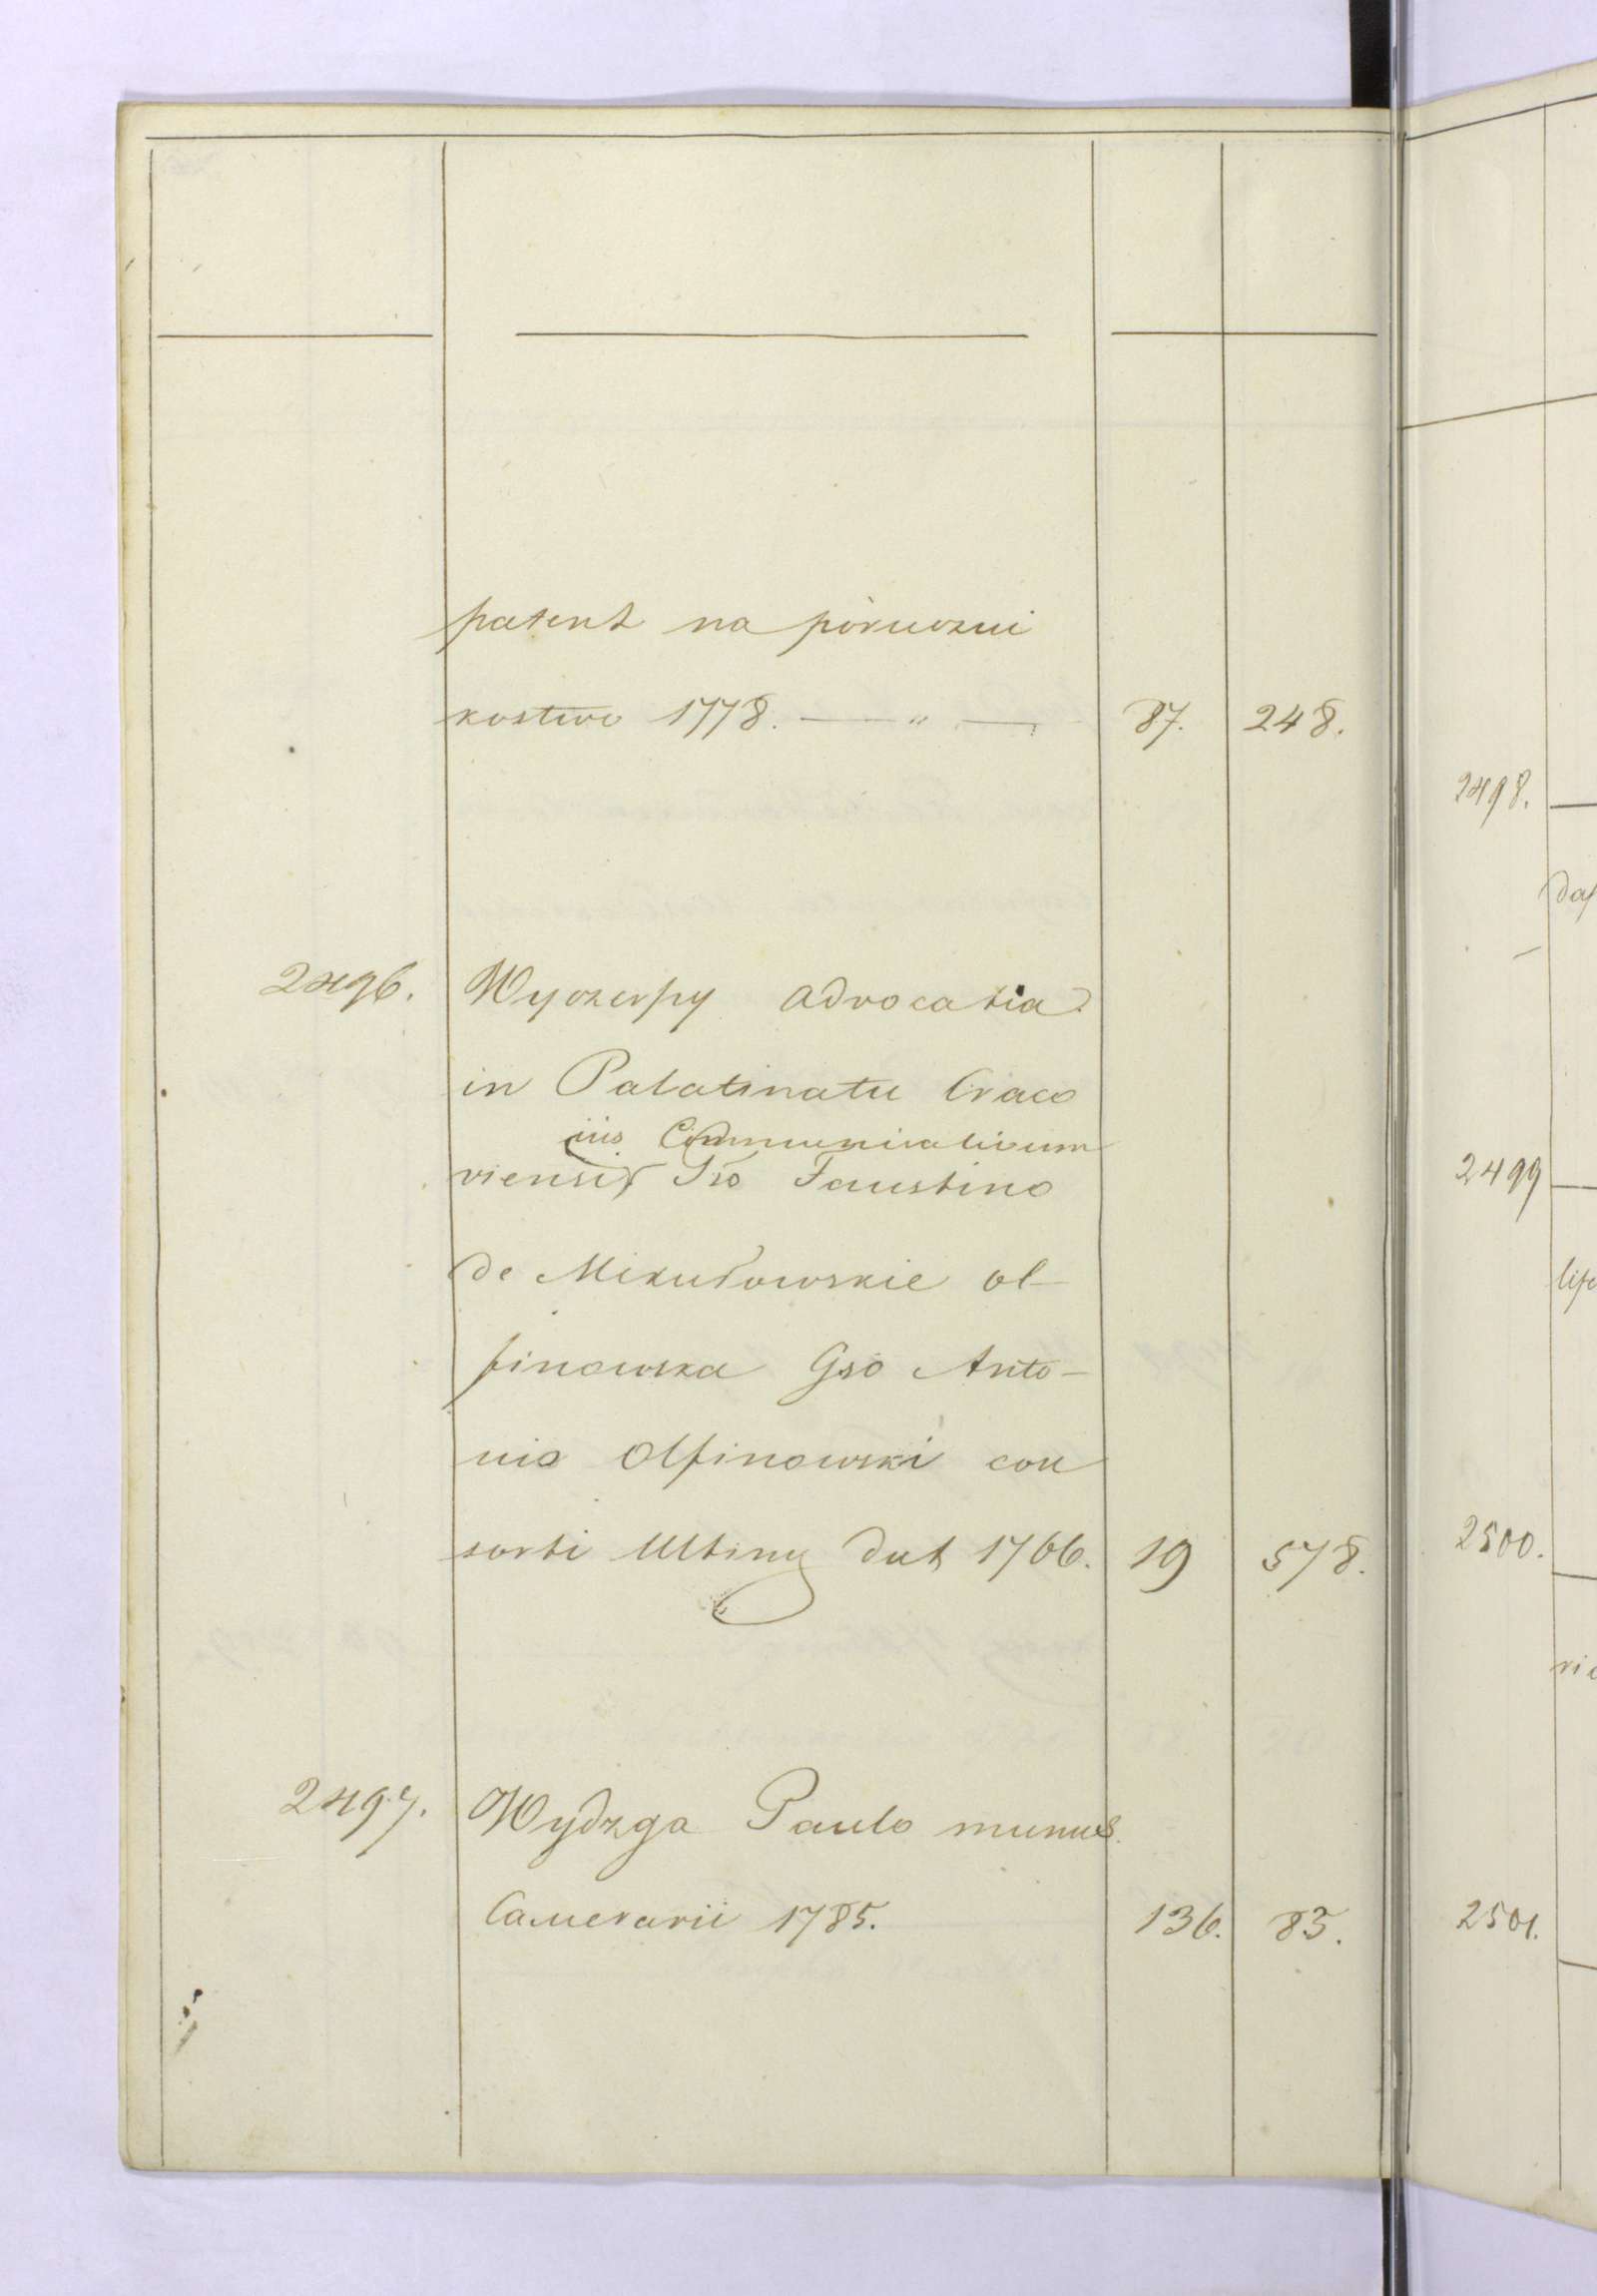 patent na póruczni
kostwo 1778. — " — 87. 248.
2496. Wyczerpy advocatia
in Palatinatu Craco
ius Communicativum
viensi Gso Faustino
de Mikułowskie Ol-
finowska Gso Anto-
nio Olfinowski con
sorti dat 1766. 19 578.
2497. Wydzga Paulo munus
Camerarii 1785. 136. 83.
2498.
2499
2500.
2501.